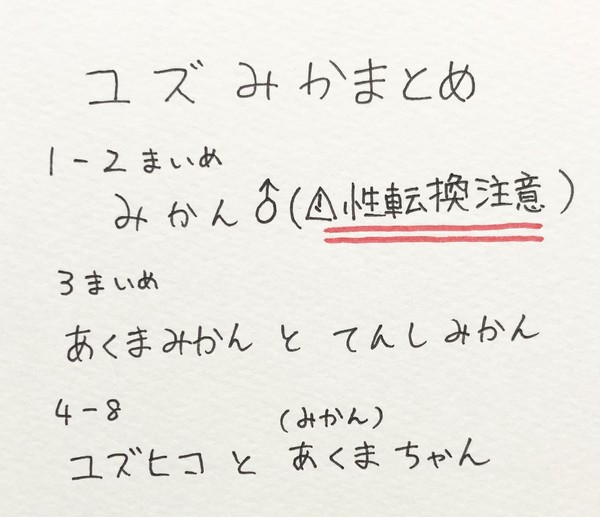 ユズみかまとめ
1-2まいめ
みかん♂(⚠性転換注意)
3まいめ
あくまみかんとてんしみかん
4-8
(みかん)
ユズヒコとあくまちゃん